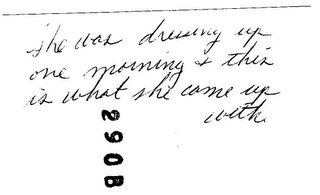 she was dressing up
one morning & this
is what she came up
with.
290B